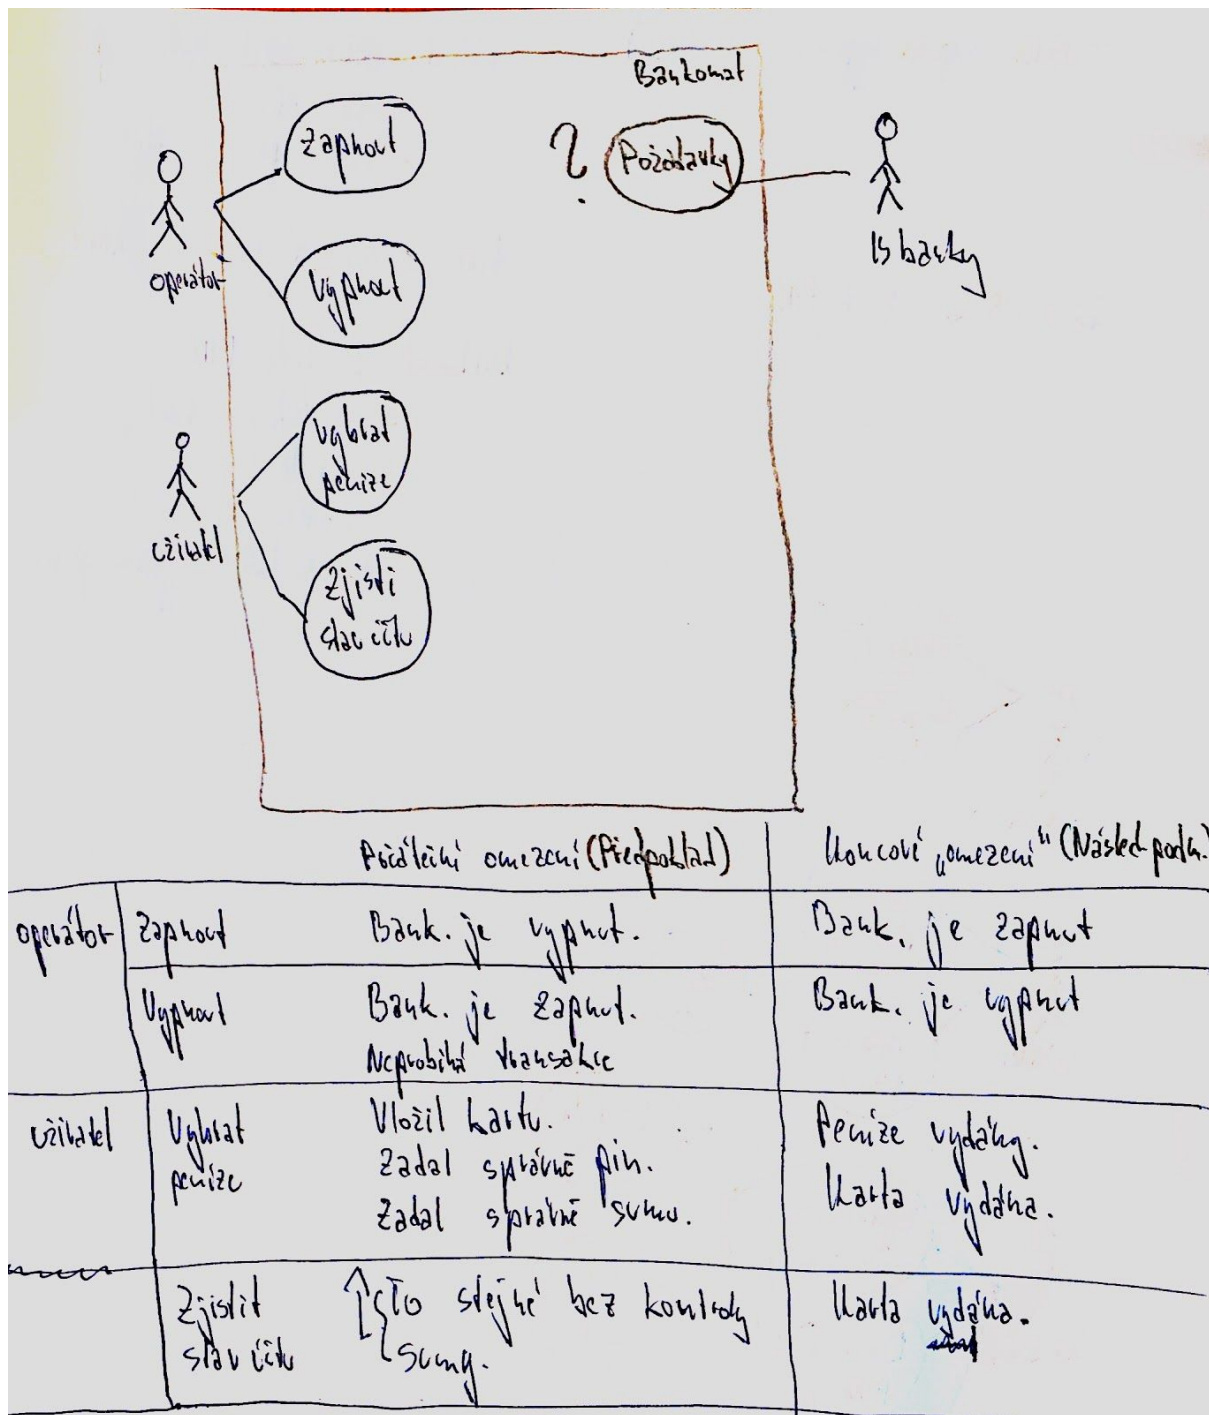 Bankomat
zapnout
?
Požadavky
operátor
IS banky
Vypnout
vybrat
peníze
uživatel
Zjisti
stav účtu
Počáteční omezení (Předpoklad)
Koncové „omezení“ (Násled. podm.)
operátor
Zapnout
Bank. je vypnut.
Bank. je zapnut
Vypnout
Bank. je zapnut.
Neprobíhá transakce
Bank. je vypnut
uživatel
Vybrat
peníze
Vložil kartu.
Zadal správně pin.
Zadal správně sumu.
Peníze vydány.
Karta vydána.
Zjistit
stav účtu
To stejné bez kontroly
sumy.
Karta vydána.